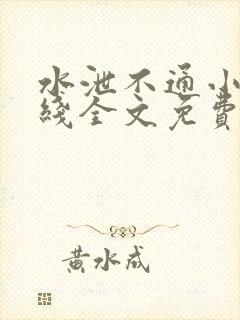 水泄不通小
綫全文免費
黃水成